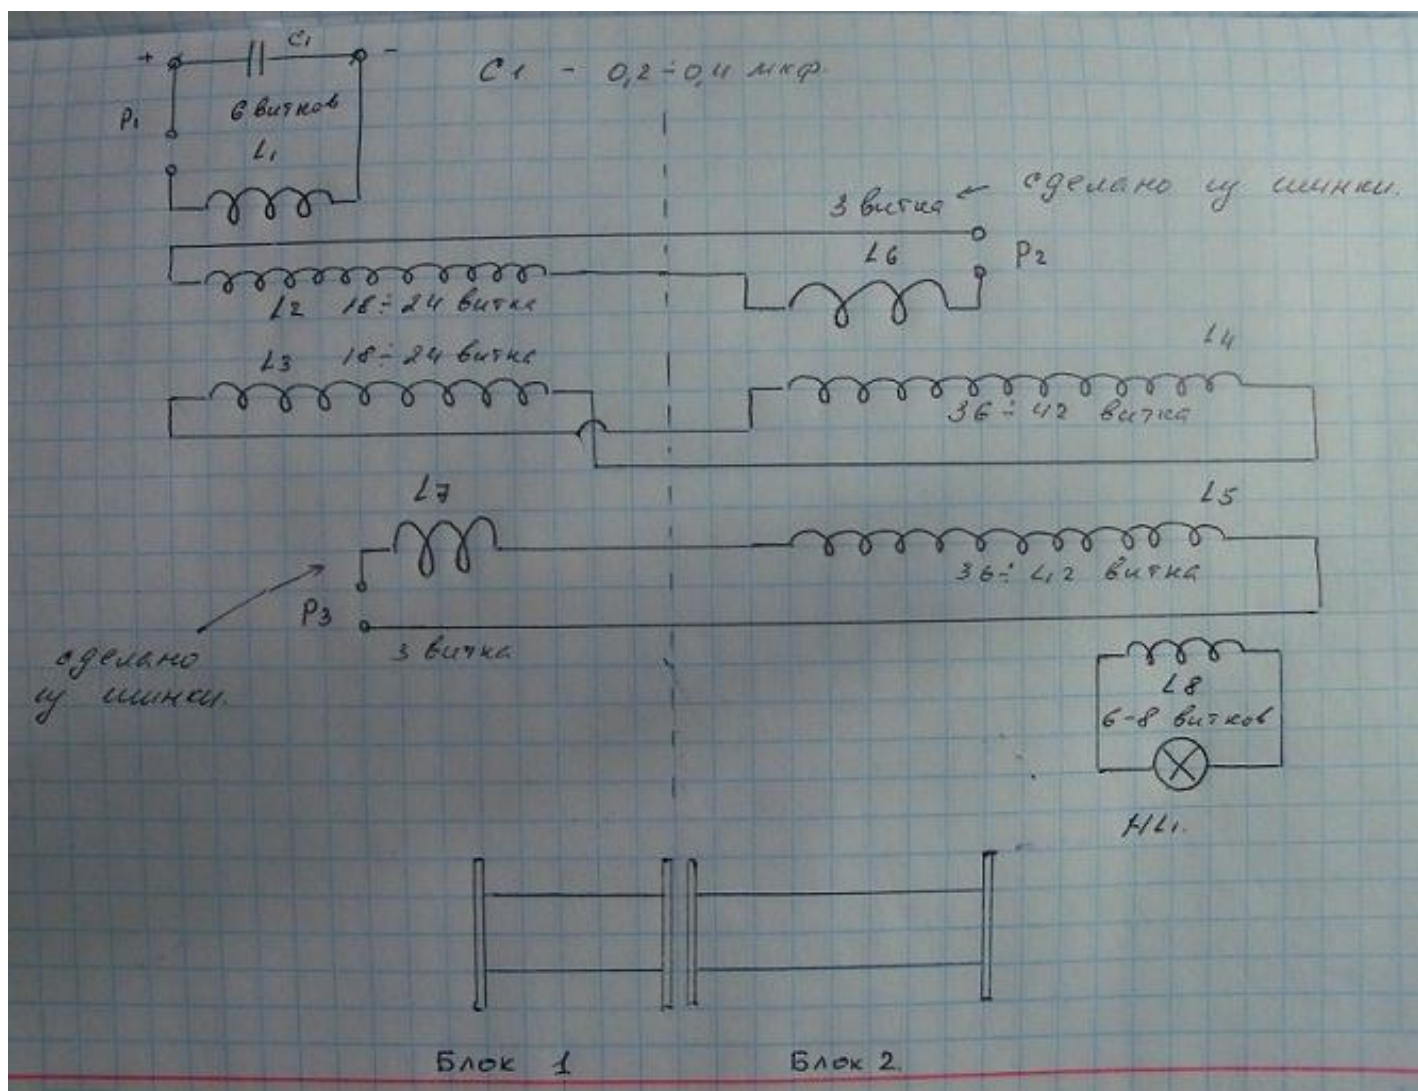 + C1 -
C1 - 0,2÷0,4 мкф.
P1
6 витков
L1
3 витка ← сделано из шинки.
L6
P2
L2 18÷24 витка
L3 18÷24 витка
L4
36÷42 витка
L7
L5
36÷42 витка
P3
3 витка
сделано
из шинки.
L8
6-8 витков
HL1.
Блок 1 Блок 2.